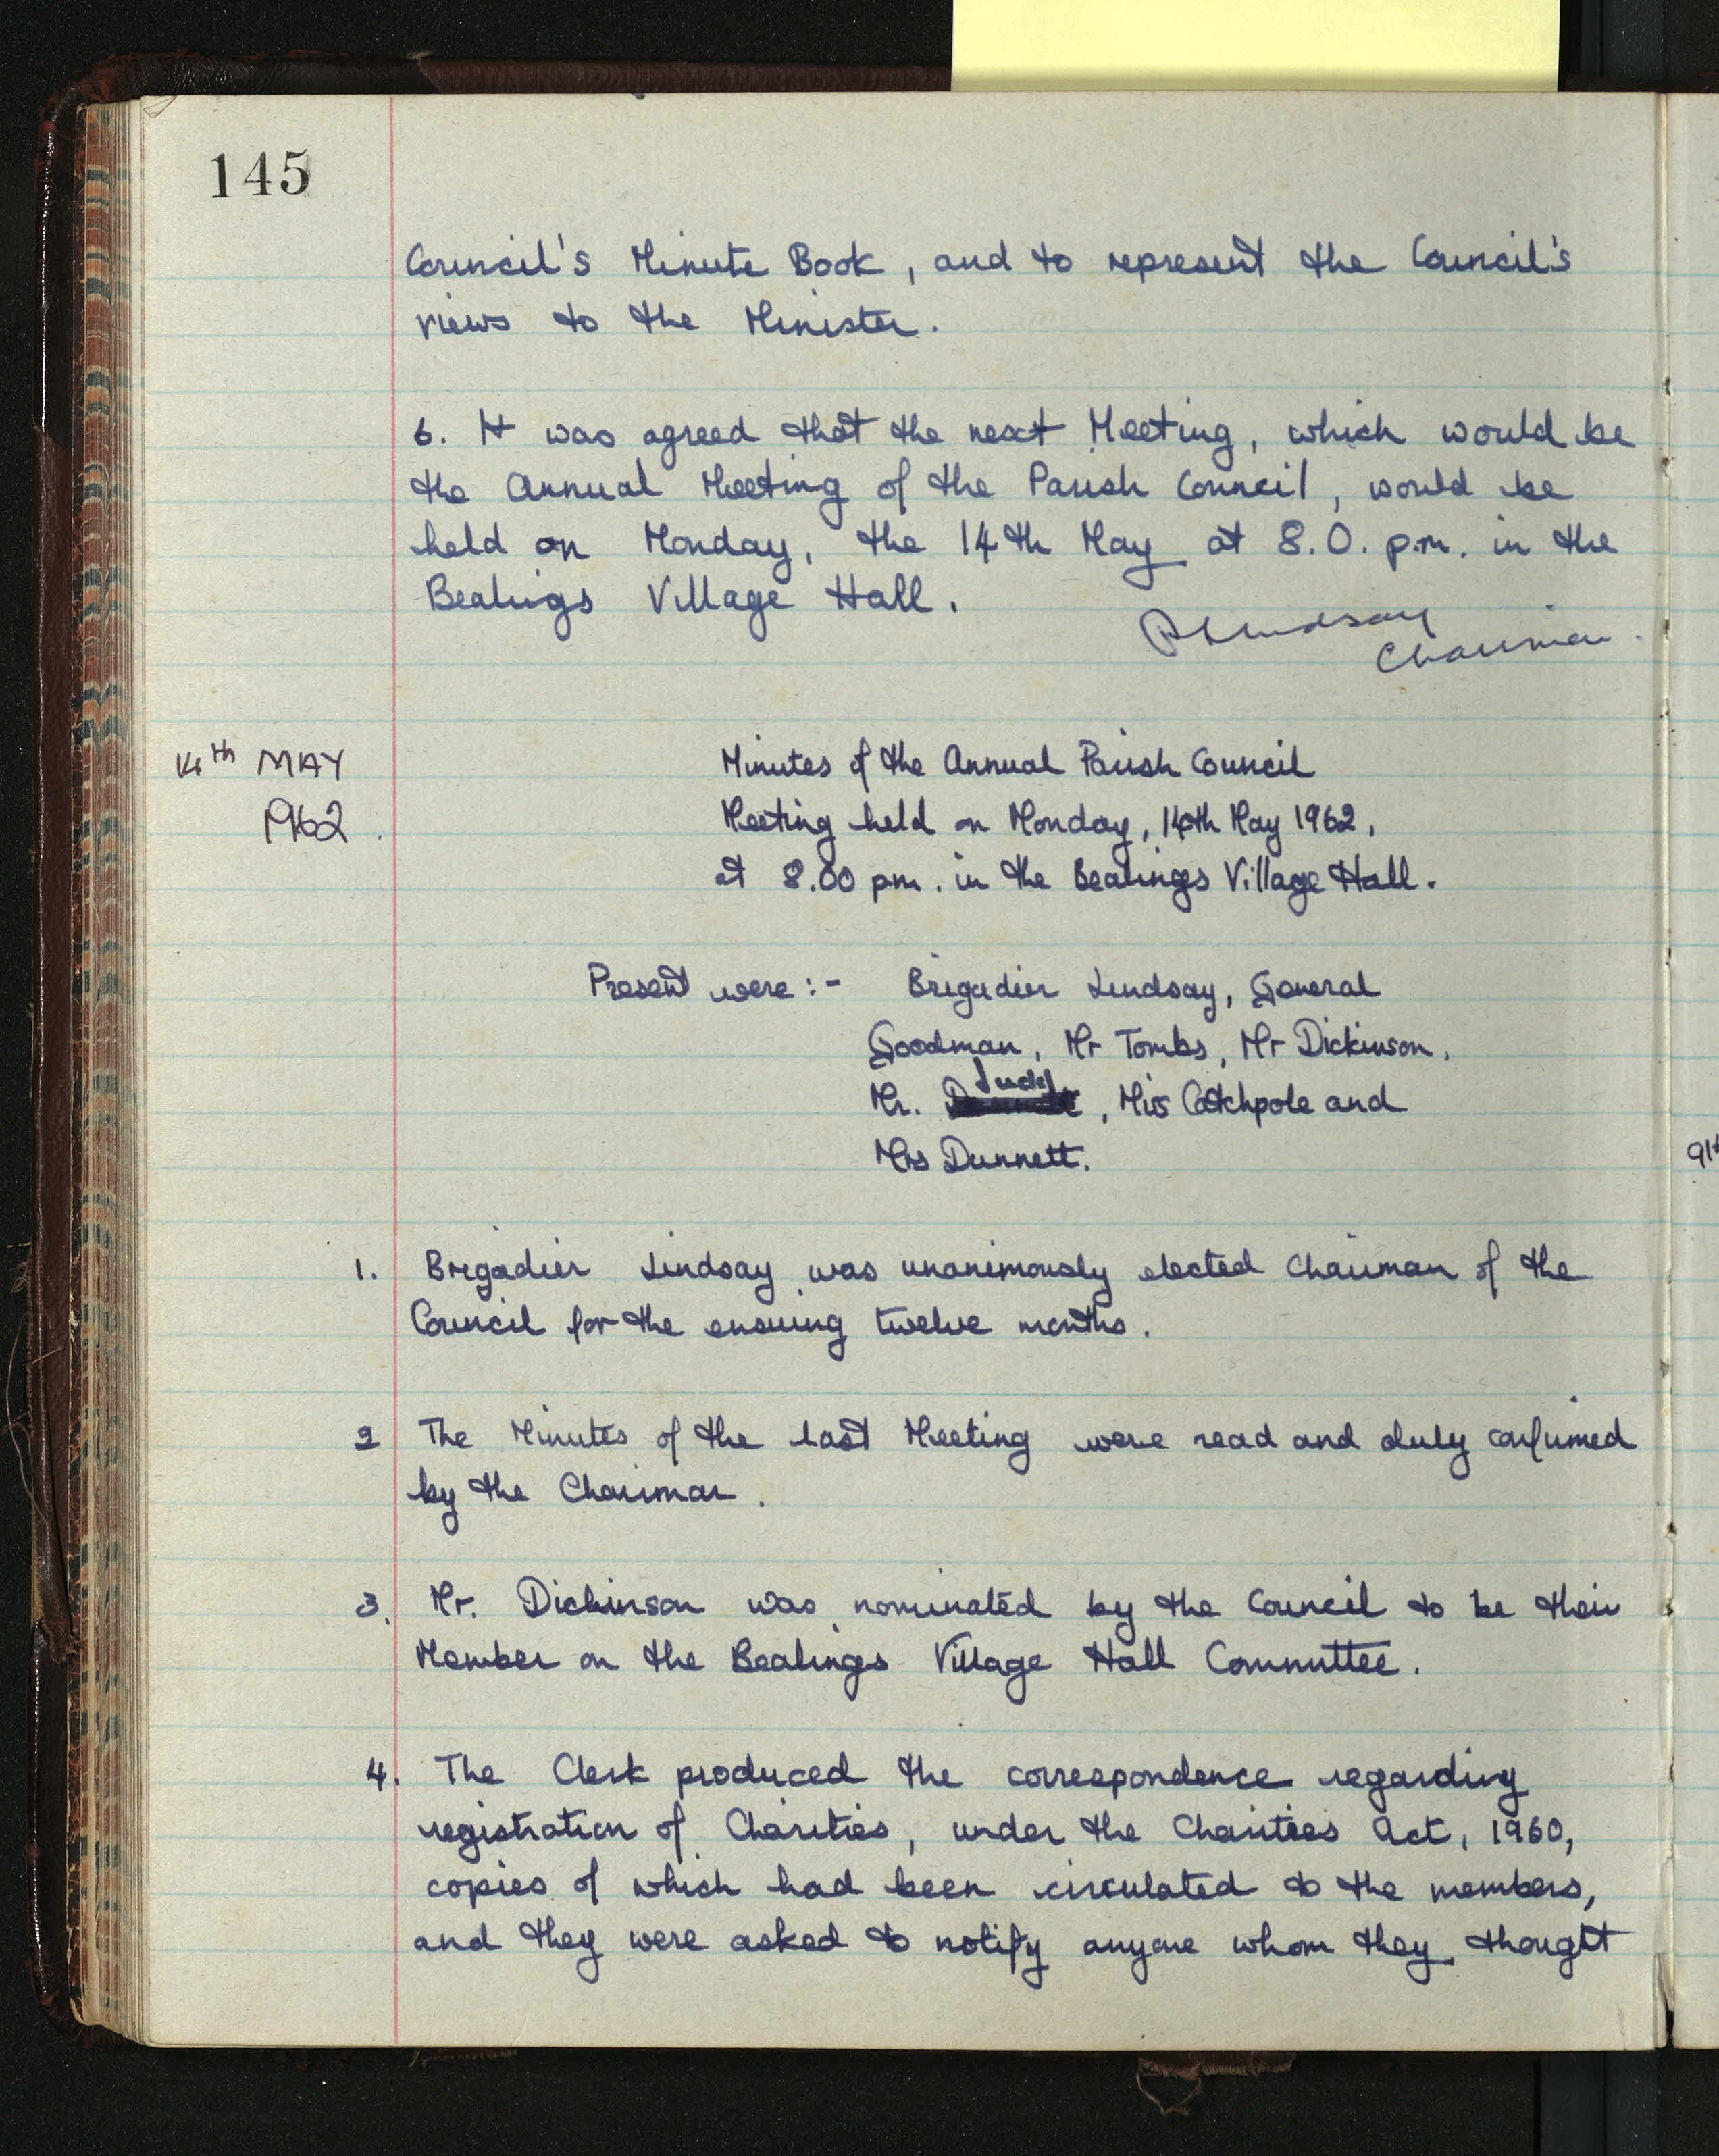 145
Council's Minute Book, and to represent the Council's
views to the Minister.
6. It was agreed that the next Meeting, which would be
the Annual Meeting of the Parish Council, would be
held on Monday, the 14th May at 8.0. p.m. in the
Bealings Village Hall.
Lindsay
Chairman.
14th MAY
1962.
Minutes of the Annual Parish Council
Meeting held on Monday, 14th May 1962,
at 8.00 pm. in the Bealings Village Hall.
Present were :- Brigadier Lindsay, General
Goodman, Mr Tombs, Mr Dickinson,
Judd
Mr. , Miss Catchpole and
Mrs Dunnett.
1. Brigadier Lindsay was unanimously elected Chairman of the
Council for the ensuing twelve months.
2 The Minutes of the last Meeting were read and duly confirmed
by the Chairman.
3. Mr. Dickinson was nominated by the Council to be their
Member on the Bealings Village Hall Committee.
4. The Clerk produced the correspondence regarding
registration of Charities, under the Charities Act, 1960,
copies of which had been circulated to the members,
and they were asked to notify anyone whom they thought